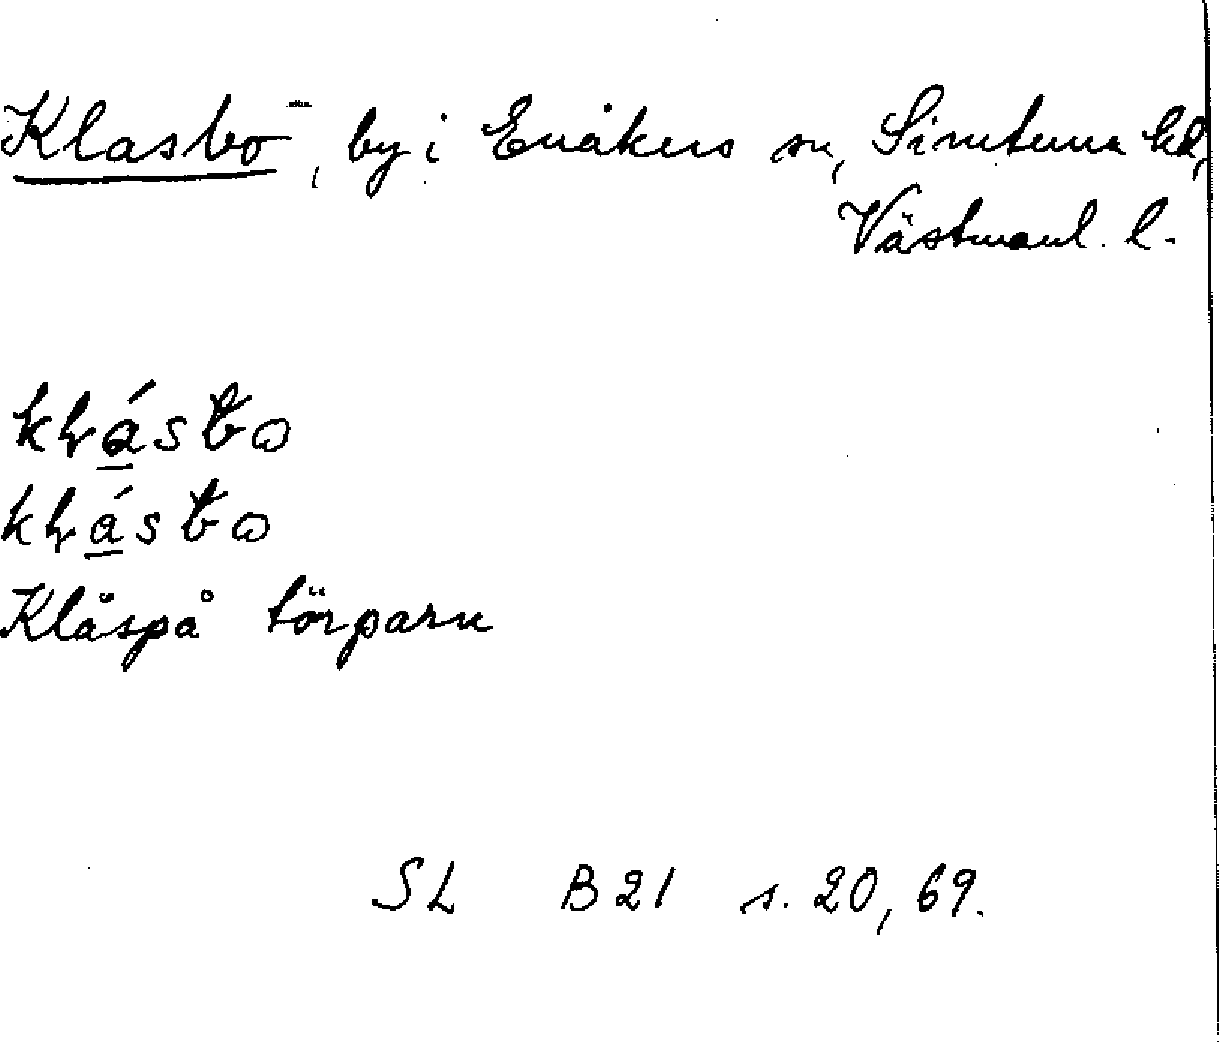 Klasbo, by i Enåkers sn, Simtuna hd,
Västmanl. l.
Klåspå törparn
SL B21 s. 20, 69.